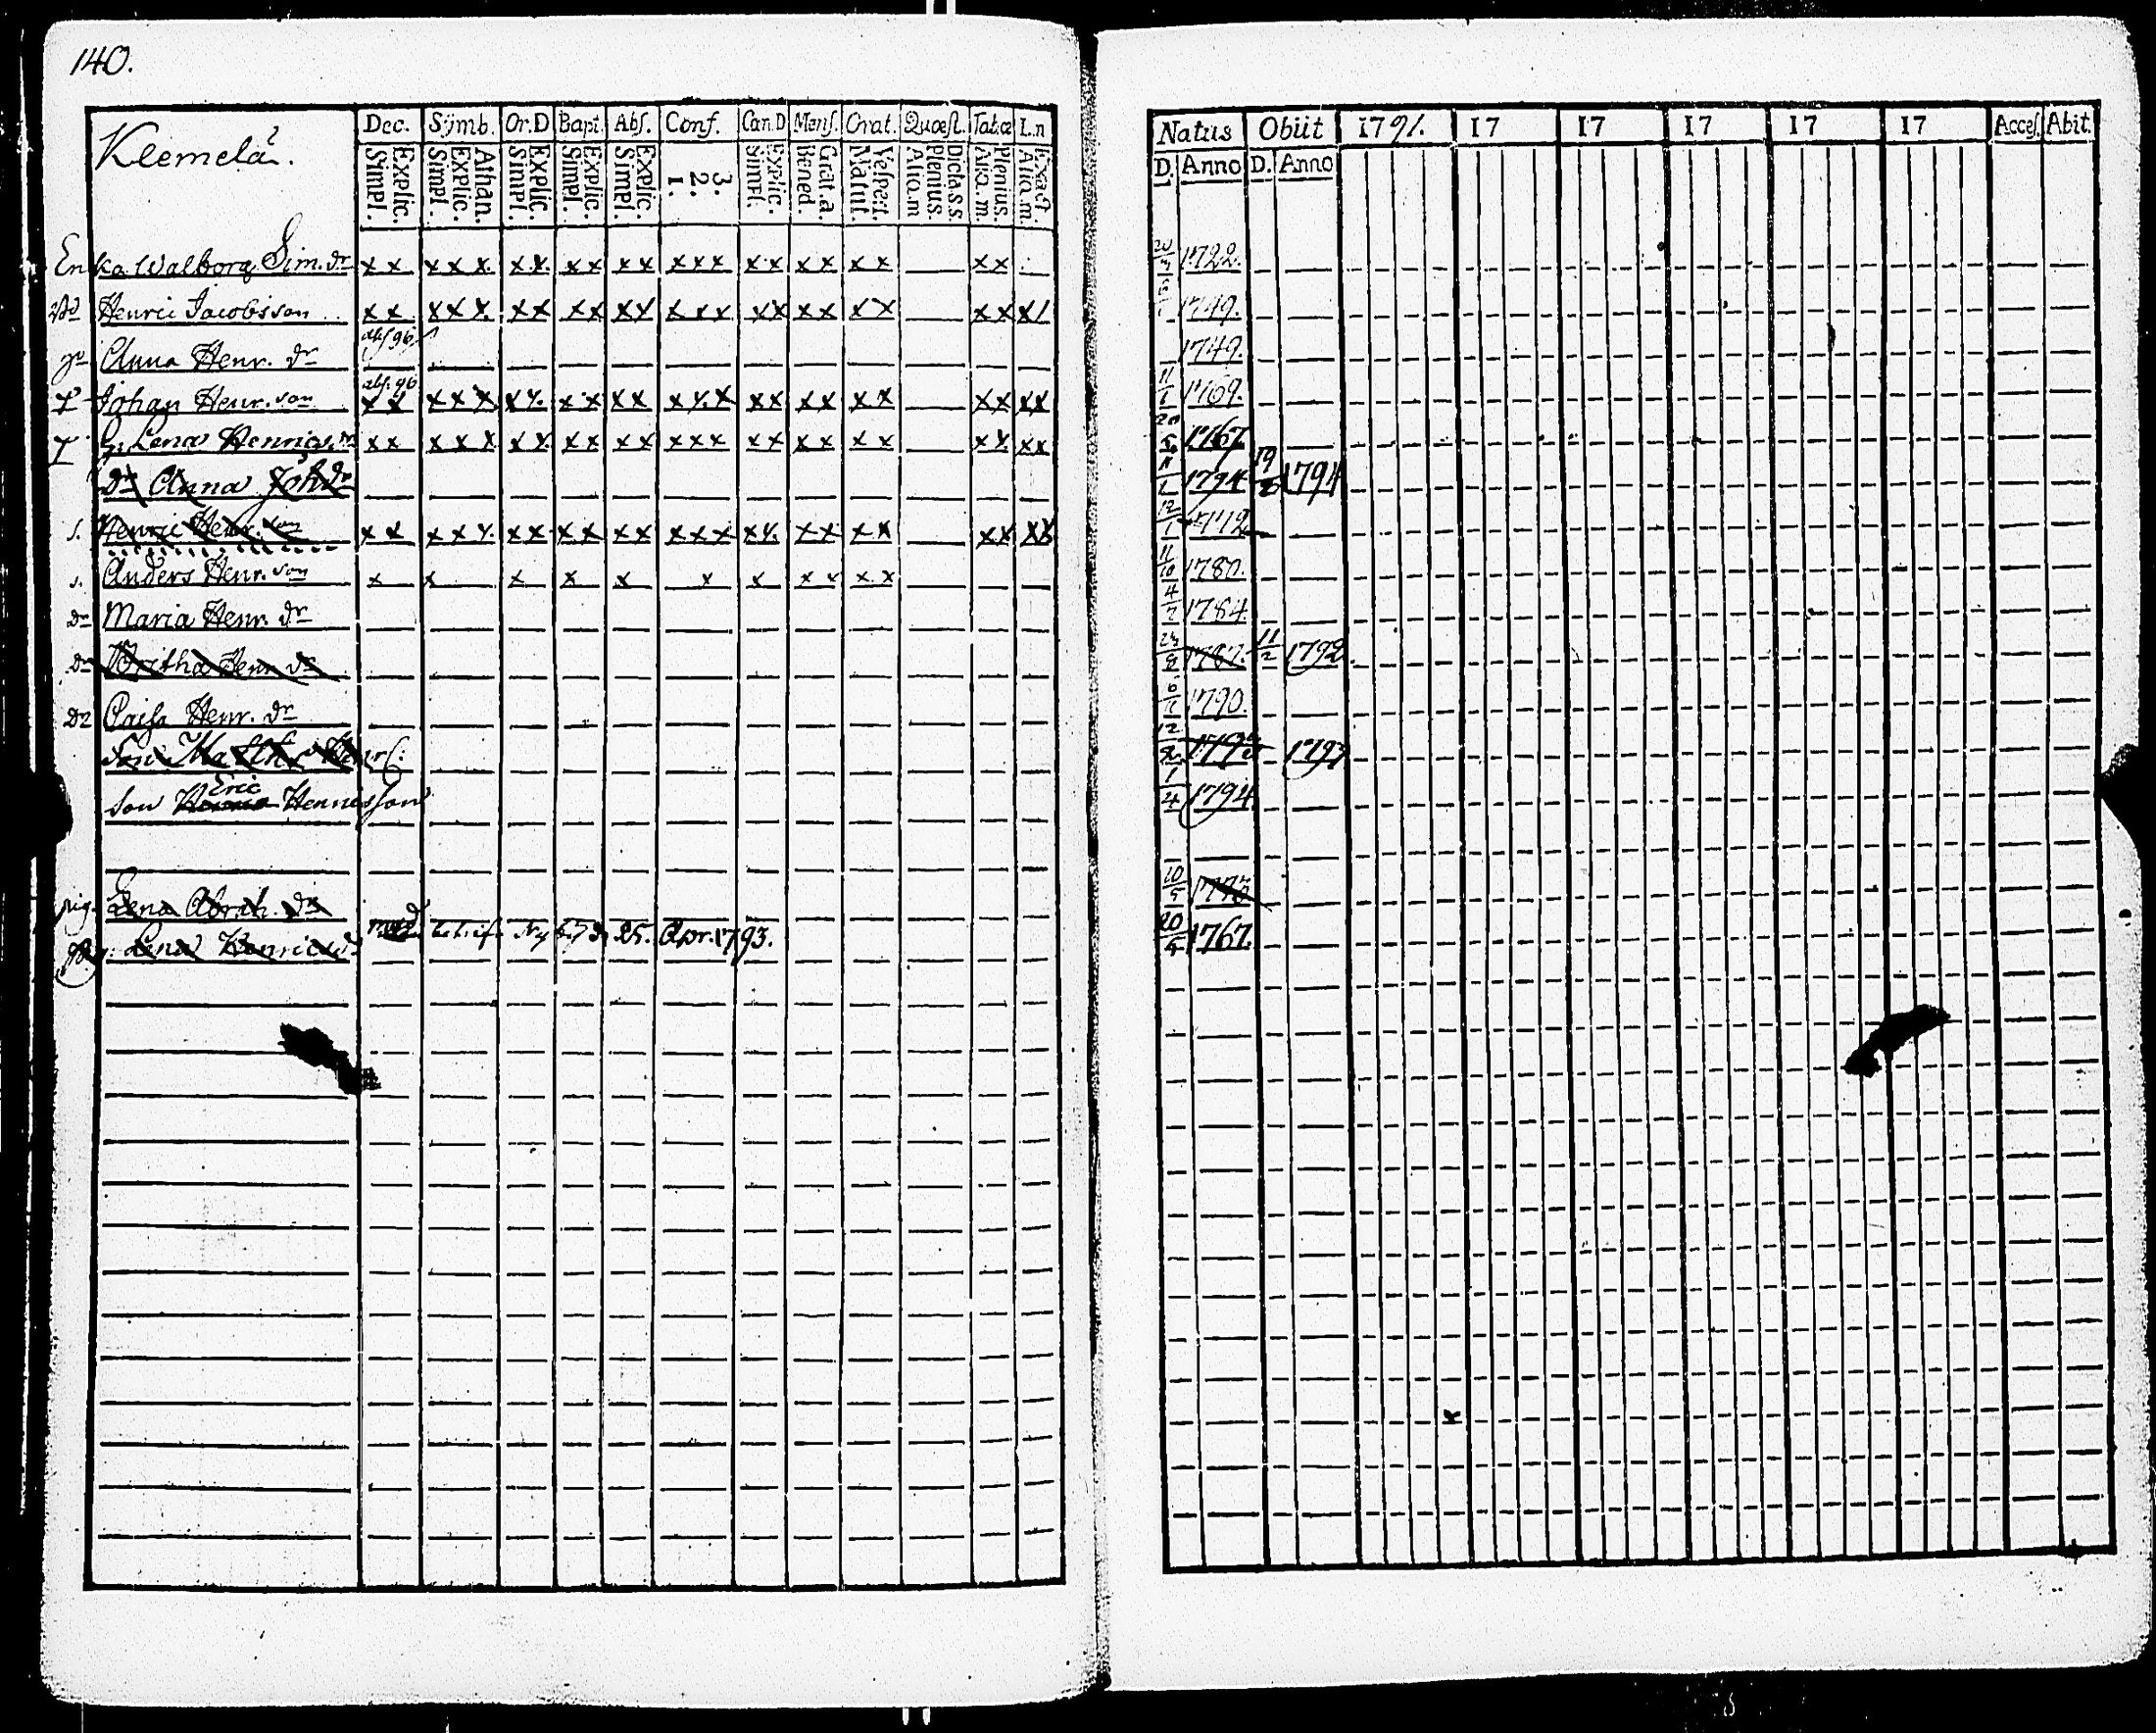 140.
Klemelä.
Dec. Symb. Or.D Bapt. Abs. Conf. Can.D Mens. Orat. Quæst. Tab.œ L.n
Explic. Simpl. Athan. Explic. Simpl. Explic. Simpl. Explic. Simpl. Explic. Simpl. 3. 2. 1. Explic. Simpl. Grat.a. Bened. Vespert. Matut. Dicta.s.s. Plenius. Aliq.m Plenius. Aliq.m. Exact. Aliq.m.
Natus Obiit 1791. 17 17 17 17 17 Acces. Abit.
D. Anno D. Anno
Enka Walborg Sim. dr x x x x x x x x x x x x x x x x x x x x x x x 1722.
Henric Jacobsson x x x x x x x x x x x x x x x x x x x x x x x 1749.
Anna Henr. dr 1749.
abs. 96
Johan Henr. son x x x x x x x x x x x x x x x x x x x x x x x x 11 1769.
Lena Henrics. dr x x x x x x x x x x x x x x x x x x x x x x x x 20 1767
Dr Anna Joh dr 1794 19 1794
s. Henric Henr. son x x x x x x x x x x x x x x x x x x x x x x x x 12/1 1772
s. Anders Henr. son x x x x x x x x x x x 11/10 1780.
dr Maria Henr. dr 4/7 1784.
dr Britha Henr. dr 1787. 11/2 1792
dr Caisa Henr. dr 1790.
Son Matths Henr 12 1797
Eric
son Henricsson 1/4 1794
pig. Lena Abrah. dr 20/5 1773
25. Apr. 1793.
Lena Henricsdr 20/5 1767.